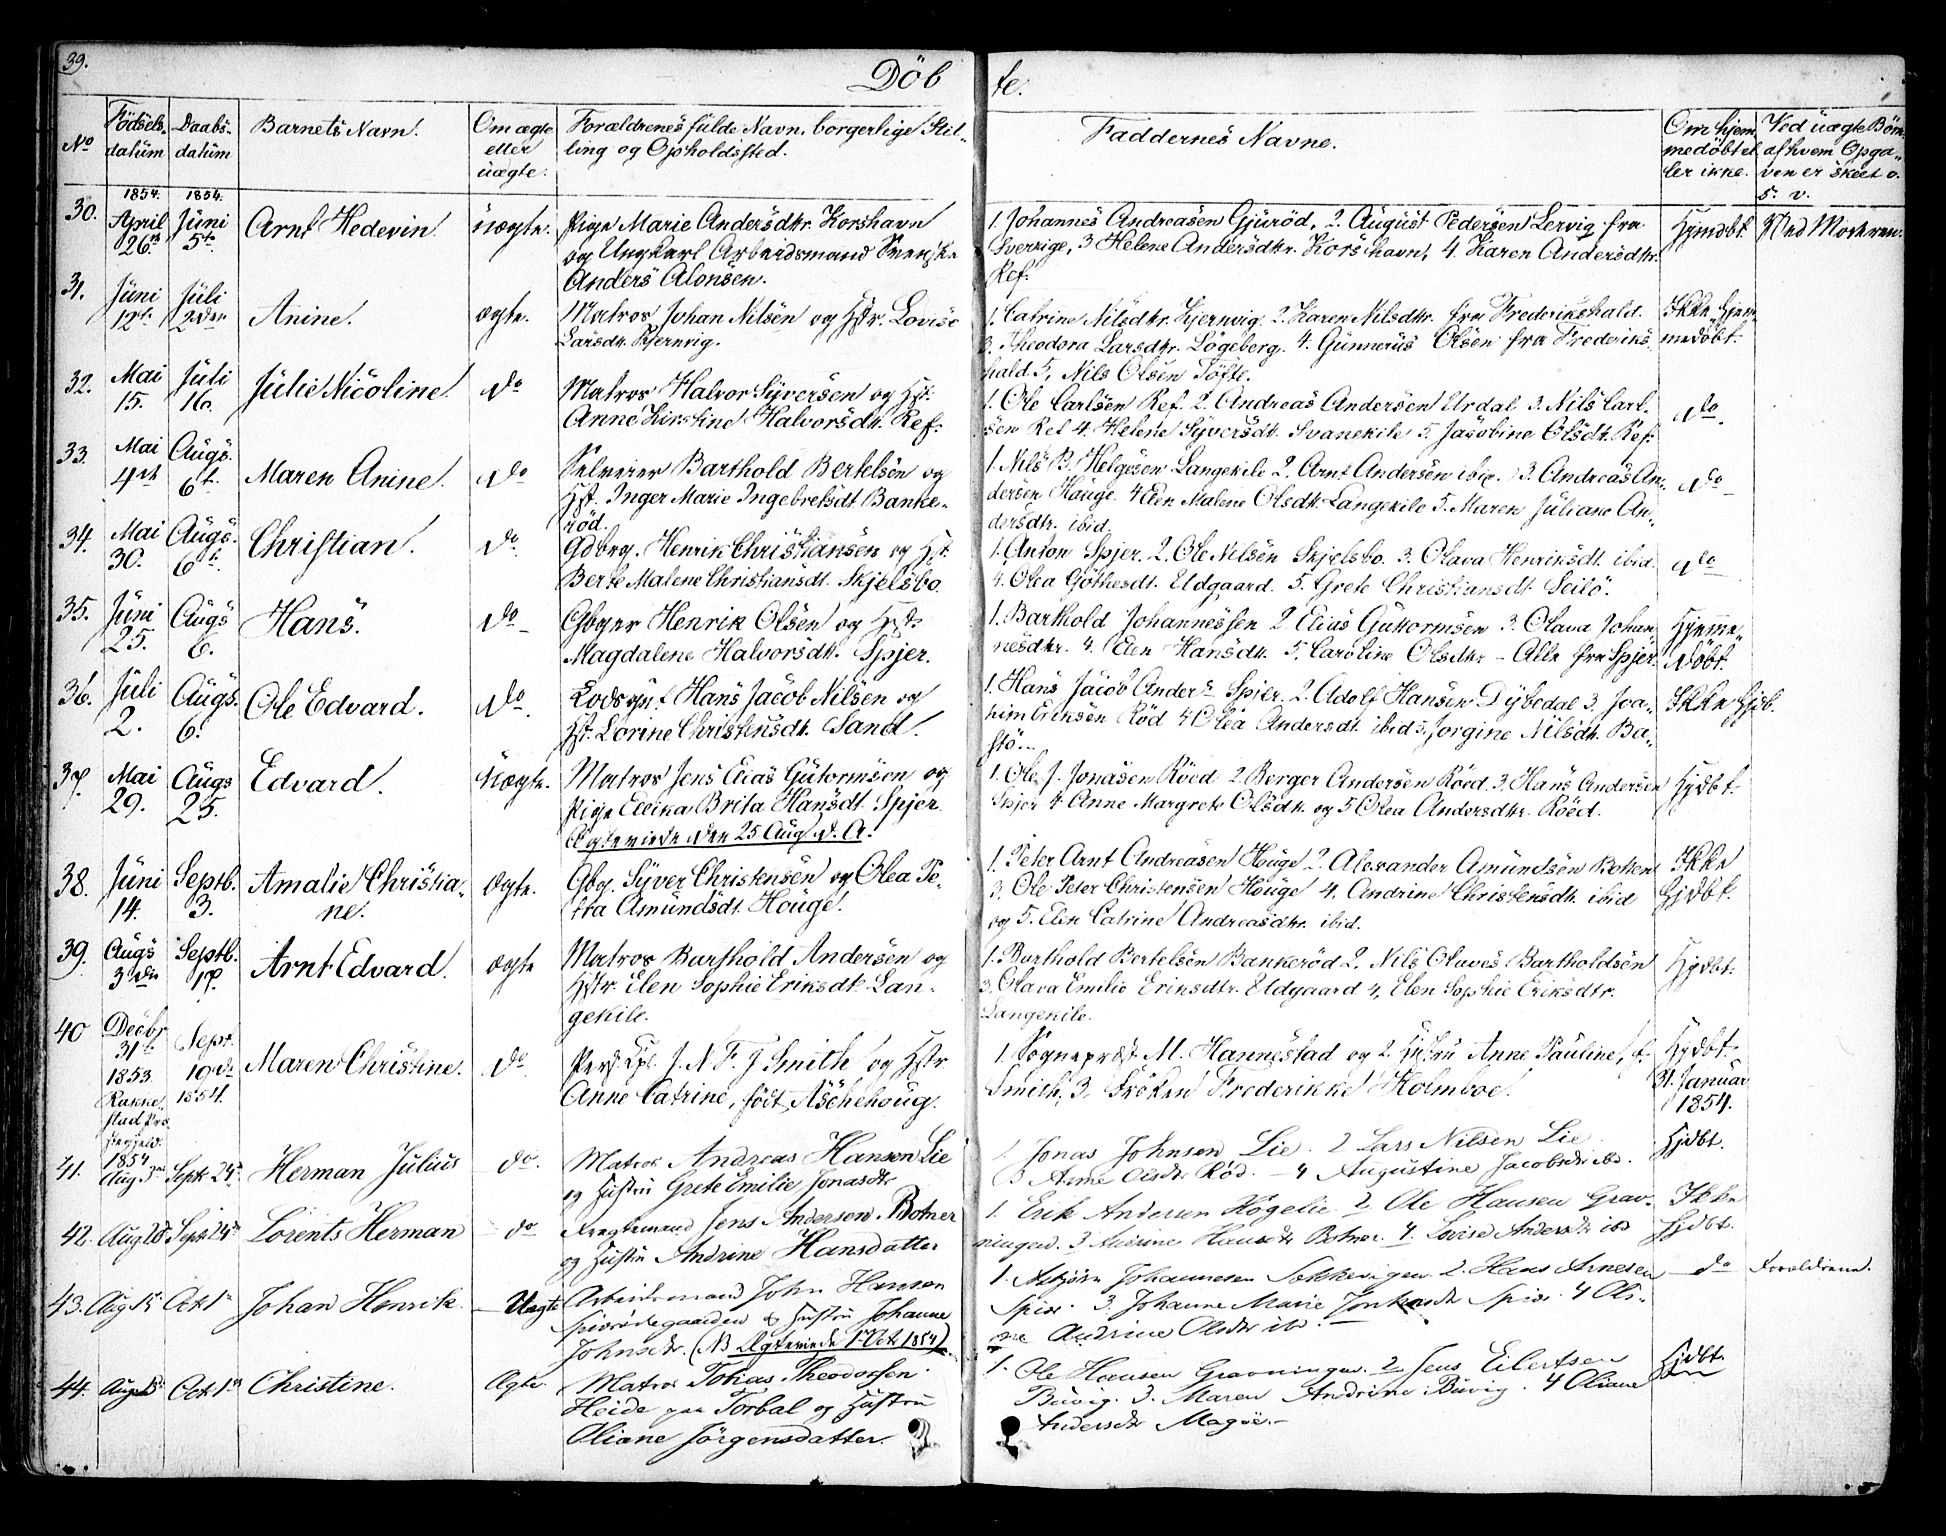 39.
Döb te.
No
Födsels-
datüm
Daabs-
datüm
Barnets Navn.
Om ægte
eller
üægte.
Forældrenes fülde Navn, borgerlige Stil-
ling og Opholdssted.
Faddernes Navne.
Om hjem
medöbt el
ler ikke.
Ved üægte Börn
af hvem Opga-
ven er skeet o.
s. v.
30.
1854.
April
26
1854.
Jüni
5te
Arnt Hedevin
üægte.
Pige Marie Andersdtr. Korshavn
og Ungkarl Arbeidsmand Svenske
Anders Alonsen.
1. Johannes Andreasen Gjuröd, 2. August Pedersen Lervig fra
Sverrige, 3 Helene Andersdtr. Korshavn, 4. Karen Andersdtr.
Ref.
Hjmdbt.
Ved Moderen.
31.
Jüni
12t.
Jüli
2den
Anine.
ægte.
Matros Johan Nilsen og Hstr. Lovise
Larsdtr. Kjernvig.
1. Catrine Nilsdtr. Kjernvig. 2. Karen Nilsdtr. fra Frederikshald.
3. Theodora Larsdtr. Lögeberg. 4. Günnerüs Olsen fra Frederiks
hald. 5, Nils Olsen Töfte.
Ikke Hjem-
medöbt.
32.
Mai
15.
Jüli
16.
Jülie Nicoline
do
Matros Halvor Syversen og Hst.
Anne Kirstine Halvorsdtr. Ref.
1. Ole Carlsen Ref. 2. Andreas Andersen Urdal 3. Nils Carl-
sen Ref 4. Helene Syversdt. Svanekile 5. Jacobine Olsdt. Ref.
do
33.
Mai
4de
Augs.
6t.
Maren Anine.
do
Selveier Barthold Bertelsen og
Hst. Inger Marie Ingebretsdt Banke-
röd.
1. Nils B. Helgesen Langekile 2. Arnt Andersen ibid. 3. Andreas An-
dersen Haüge. 4 Elen Malene Olsdtr. Langekile 5. Maren Jüliane An-
dersdtr. ibid.
do
34.
Mai
30.
Augs.
6t.
Christian.
do
Gdbrg. Henrik Christiansen og Hst.
Berte Malene Christiansdt. Skjelsbo.
1. Anton Spjer. 2. Ole Nilsen Skjelsbo. 3. Olava Henriksdt. ibid.
4. Olea Göthesdt. Eldgaard. 5. Grete Christiansdt Seilö.
do
35.
Jüni
25.
Augs
6.
Hans.
do
Henrik Olsen og Hst.
Magdalene Halvorsdt. Spjer.
1. Barthold Johannessen 2 Elias Güttormsen 3. Olava Johan
nesdtr. 4. Elen Hansdt. 5. Caroline Olsdtr - Alle fra Spjer.
Hjemme-
döbt.
36.
Jüli
2.
Augs.
6.
Ole Edvard.
do
Hans Jacob Nilsen og
Hst. Lorine Christensdt. Sand.
1. Hans Jacob Anders. Spjer. 2. Adolf Hansen Dybedal 3. Joa-
kim Eriksen Röd 4 Olea Andersdt. ibid 5. Jorgine Nilsdt. Ba-
stö.
Ikke Hjdb.
37.
Mai
29.
Augs
25.
Edvard.
Uægte.
Matros Jens Elias Gütormsen og
Pige Brita Hansdt. Spjer.
Ægteviede den 25 Aug. d. A.
1. Ole J. Jonasen Röed 2. Berger Andersen Röed. 3. Hans Andersen
Spjer 4. Anne Margrete Olsdtr. og 5 Olea Andersdtr. Röed.
Hjdbt.
38.
Jüni
14.
Septb.
3.
Amalie Christia-
ne.
ægte.
Gbg. Syver Christensen og Olea Pe-
tra Amündsdt. Hoüge.
1. Peter Arnt Andreasen Hoüge 2. Alexander Amündsen Botten
3. Ole Peter Christensen Hoüge 4. Andrine Christensdt. ibid
og 5. Elen Catrine Andreasdtr. ibid.
Ikke
Hjdbt.
39.
Augs
3die
Septb.
17.
Arnt Edvard.
ægte
Matros Barthold Andersen og
Hstr. Elen Sophie Eriksdt. Lan-
gekile.
1. Barthold Bertelsen Bankeröd 2. Nils Olaves Bartholdsen
3. Olava Emilie Eriksdtr. Eldgaard 4, Elen Sophie Eriksdtr.
Langekile.
Hjdbt.
40
Decbr
31t
1853.
Rakke-
stad Præ
stegjeld.
Sept.
19de
1854.
Maren Christine.
do
Pers. Cpl. J. N. F. J Smith og Hstr
Anne Catrine, födt Aschehoug.
1. Sognepræst M. Hannestad og 2. Hüstrü Anne Pauline, f.
Smith, 3. Fröken Frederikke Holmboe.
Hjdbt.
31. Januar
1854.
41.
1854
Aug 3
Septr 24
Herman Julius
do.
Matros Andreas Hansen Lie
og Hustru Grete Emilie Jonasdtr
1 Jonas Johnsen Lie. 2 Lars Nilsen Lie
3 Anne Olsdtr Rød. - 4 Augustine Jacobsdtr ibd.
Hjdbt.
42.
Aug 28
Septr 24
Lorents Herman
do
Jens Andersen Botner
og Hustru Andrine Hansdatter
1. Erik Andersen Kögelie 2. Ole Hansen Grav-
ningen. 3 Andrine Hansdtr Botner. 4. Lovise Andersdtr ibd
Ikke
Hjdbt.
43.
Aug 15
Oct 1
Johan Henrik
Uægte
Arbeidsmand John Hansen
Spierödegaarden og Hustru Johanne
Johnsdtr. (NB Ægteviede 1 Oct 1854).
1. Asbjörn Johannesen Sokkevigen. 2. Hans Arnesen
Spier. 3. Johanne Marie Spier. 4 Oli-
ne Andrine Olsdtr ibd.
do
Forældrene.
44.
Oct 1
Christine.
Ægte.
Matros Tobias Theodorsen
Heide paa Torbal og Hustru
Oliane Jörgensdatter.
1. Ole Hansen Gravningen. 2 Jens Eilertsen
Buvig. 3. Maren Andrine Buvig. 4 Oliane
Andersdtr Magöe.
Hjdbt.